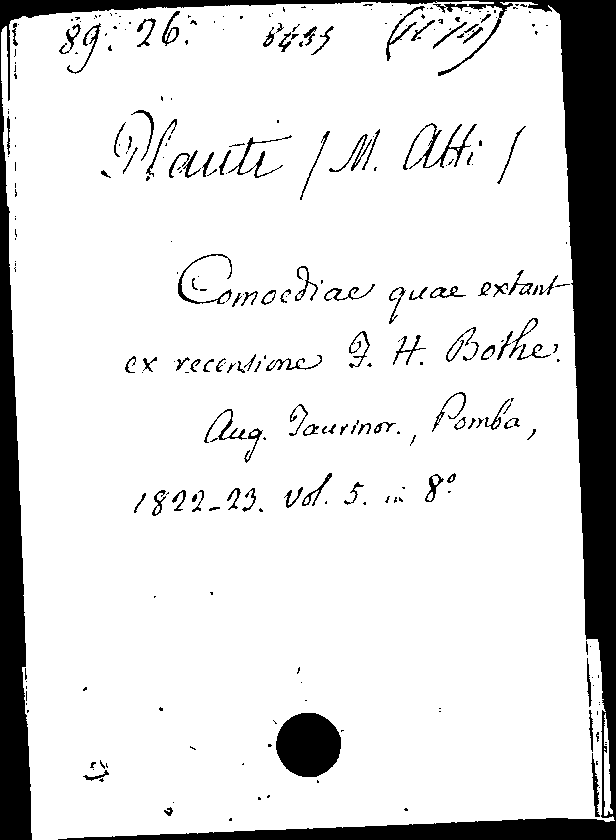 89. 26. 8435
Plauti / M. Atti /
Comoediae quae extant
ex recensione F. H. Bothe.
Aug. Taurinor., Pomba,
1822-23. Vol. 5. in 8°